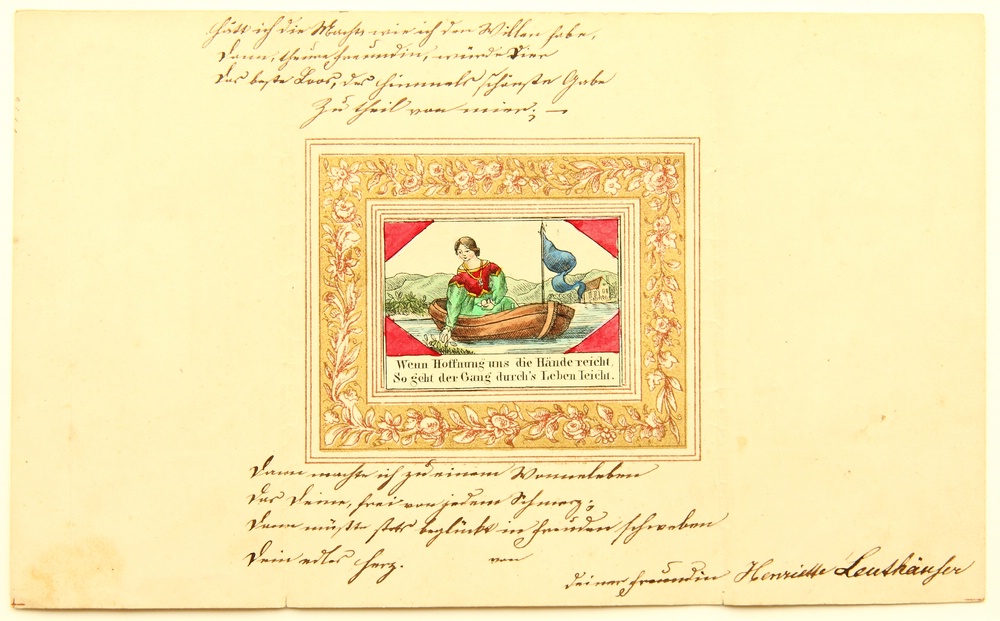 Hätt ich die Macht wie ich den Willen habe,
Dann, theure Freundin, würde Dier
Das beste Loos, des Himmels schönste Gabe
Zu theil von mier; —
Wenn Hoffnung uns die Hände reicht,
So geht der Gang durch's Leben leicht.
Dann machte ich zu einem Wonneleben
Das Deine, frei von jedem Schmerz;
Dann müßte stets beglückt in Freuden schweben
Dein edles Herz. von
deiner Freundin Henriette Leuthäuser